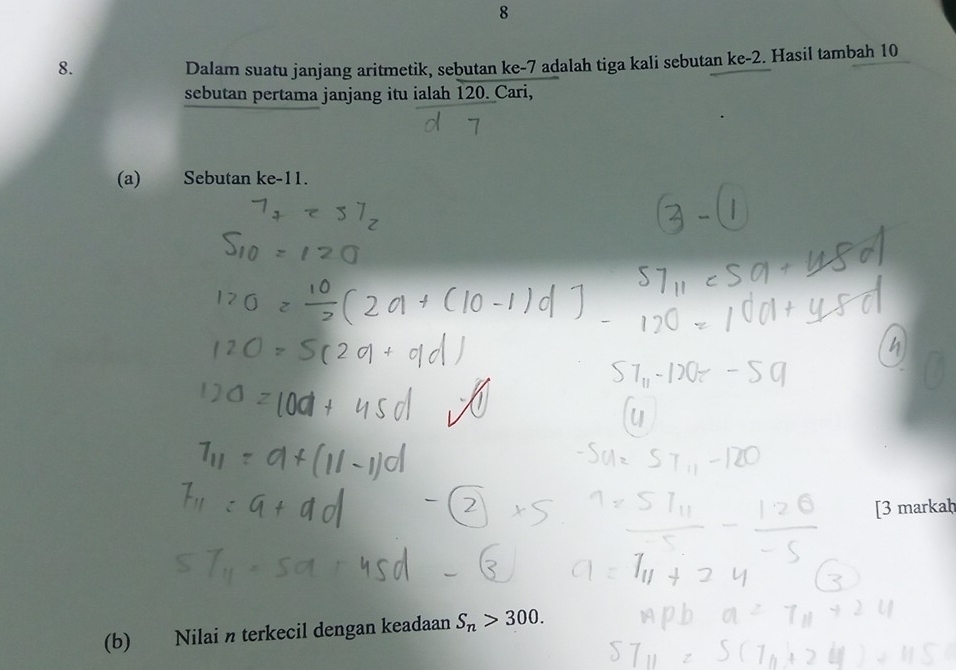 8
8. Dalam suatu janjang aritmetik, sebutan ke-7 adalah tiga kali sebutan ke-2. Hasil tambah 10
sebutan pertama janjang itu ialah 120. Cari,
d 7
(a) Sebutan ke-11.
T₇ = 3T₂
S₁₀ = 120
120 = 10/2 (2a + (10-1)d]
120 = 5(2a + 9d)
120 = 10a + 45d ①
T₁₁ = a + (11-1)d
T₁₁ = a + 9d - ② ×5
5T₁₁ = 5a + 45d - ③
③ - ①
5T₁₁ = 5a + 45d
- 120 = 10a + 45d
5T₁₁ - 120 = -5a
④
-5a = 5T₁₁ - 120
a = 5T₁₁/-5 - 120/-5
a = T₁₁ + 24 ③
a = T₁₁ + 24
5T₁₁ = 5(T₁₁ + 24) + 45
[3 markah
(b) Nilai n terkecil dengan keadaan Sₙ > 300.